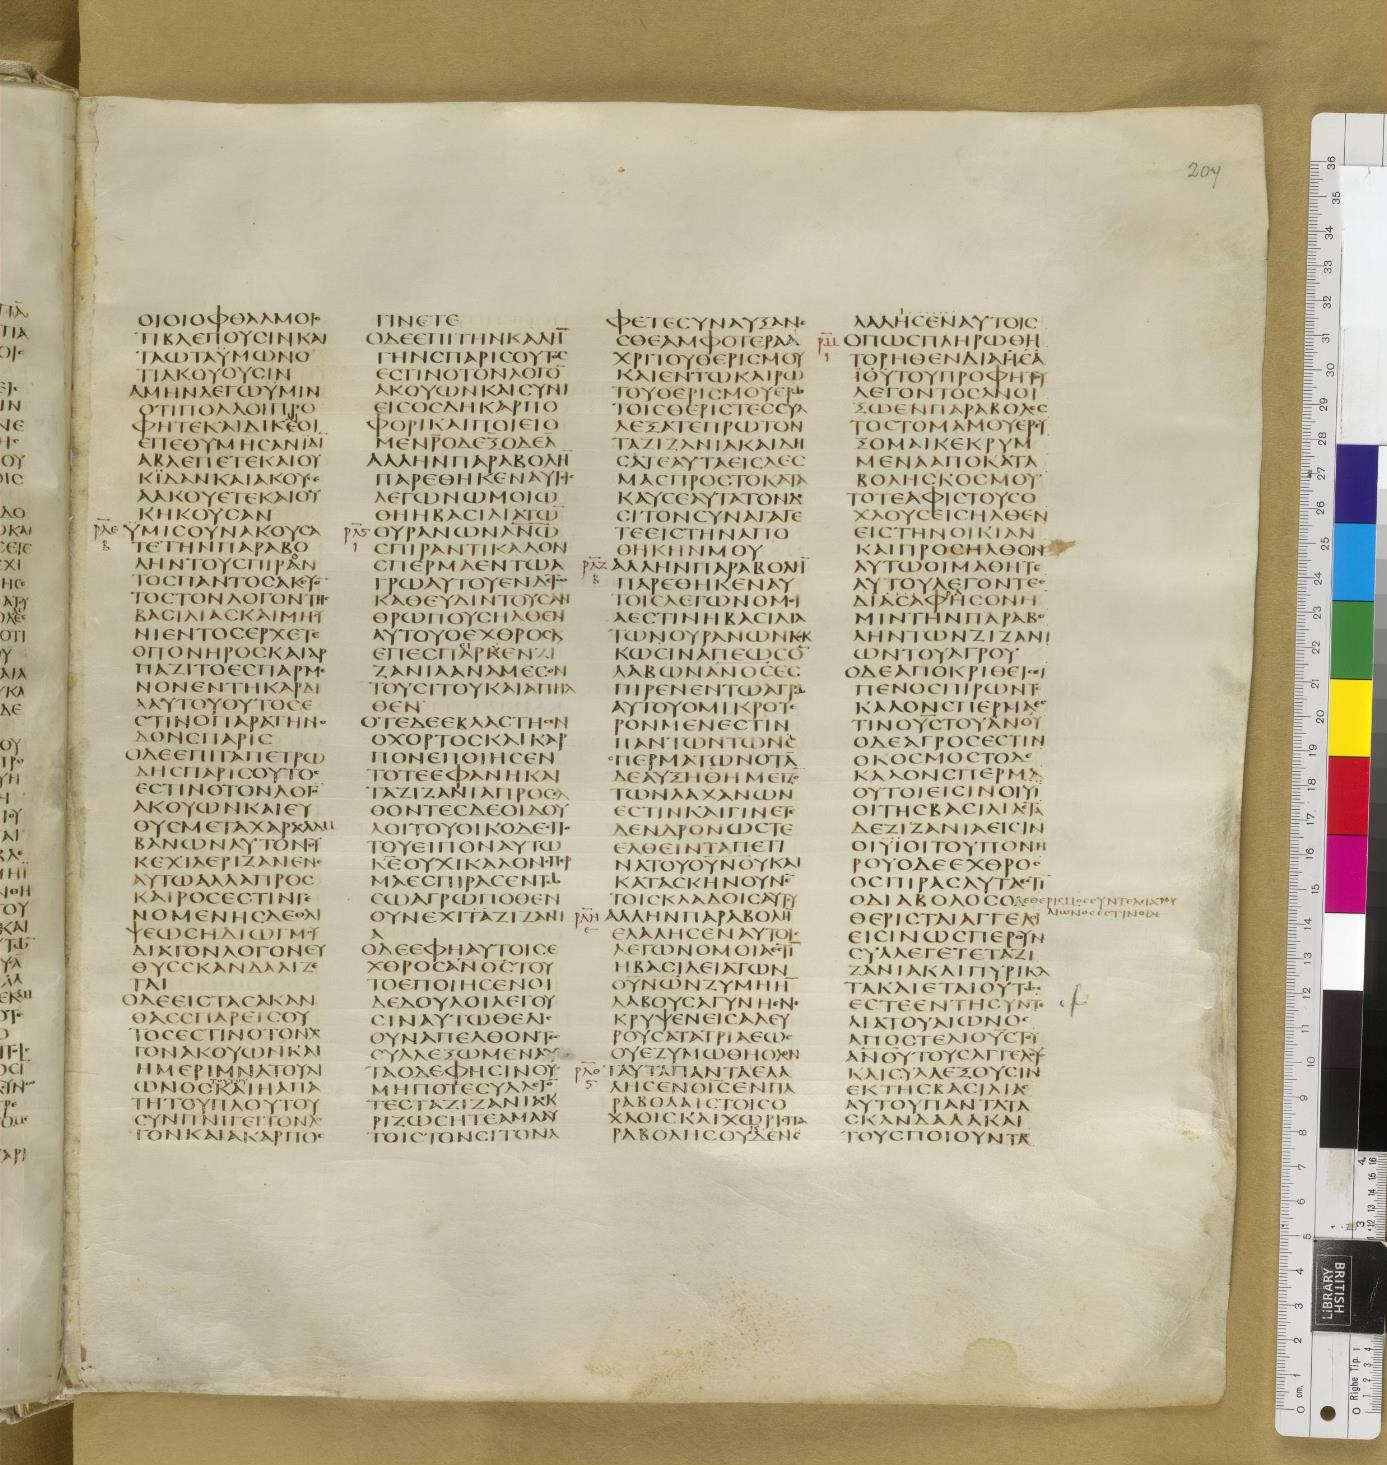 204
ΟΙΟΙΟΦΘΑΛΜΟΙΟ
ΤΙΒΛΕΠΟΥϹΙΝΚΑΙ
ΤΑΩΤΑΫΜΩΝΟ
ΤΙΑΚΟΥΟΥϹΙΝ
ΑΜΗΝΛΕΓΩΫΜΙΝ
ΟΤΙΠΟΛΛΟΙΠΡΟ
ΦΗΤΕΚΑΙΔΙΚΕΟΙ
ΕΠΕΘΥΜΗϹΑΝΙΔΙ
ΑΒΛΕΠΕΤΕΚΑΙΟΥ
ΚΙΔΑΝΚΑΙΑΚΟΥϹΕ
ΑΑΚΟΥΕΤΕΚΑΙΟΥ
ΚΗΚΟΥϹΑΝ
ΡΛΕ
Β
ΥΜΙϹΟΥΝΑΚΟΥϹΑ
ΤΕΤΗΝΠΑΡΑΒΟ
ΛΗΝΤΟΥϹΠΙΡΑΝ
ΤΟϹΠΑΝΤΟϹΑΚΟΥΟ
ΤΟϹΤΟΝΛΟΓΟΝΤΗϹ
ΒΑϹΙΛΙΑϹΚΑΙΜΗϹΥ
ΝΙΕΝΤΟϹΕΡΧΕΤΕ
ΟΠΟΝΗΡΟϹΚΑΙΑΡ
ΠΑΖΙΤΟΕϹΠΑΡΜΕ
ΝΟΝΕΝΤΗΚΑΡΔΙ
ΑΑΥΤΟΥΟΥΤΟϹΕ
ϹΤΙΝΟΠΑΡΑΤΗΝΟ
ΔΟΝϹΠΑΡΙϹ
ΟΔΕΕΠΙΤΑΠΕΤΡΩ
ΔΗϹΠΑΡΙϹΟΥΤΟϹ
ΕϹΤΙΝΟΤΟΝΛΟΓΟ
ΑΚΟΥΩΝΚΑΙΕΥ
ΘΥϹΜΕΤΑΧΑΡΑϹΛΑΜ
ΒΑΝΩΝΑΥΤΟΝΟΥ
ΚΕΧΙΔΕΡΙΖΑΝΕΝΕ
ΑΥΤΩΑΛΛΑΠΡΟϹ
ΚΑΙΡΟϹΕϹΤΙΝΓΕ
ΝΟΜΕΝΗϹΔΕΘΛΙ
ΨΕΩϹΗΔΙΩΓΜΟΥ
ΔΙΑΤΟΝΛΟΓΟΝΕΥ
ΘΥϹϹΚΑΝΔΑΛΙΖΕ
ΤΑΙ
ΟΔΕΕΙϹΤΑϹΑΚΑΝ
ΘΑϹϹΠΑΡΕΙϹΟΥ
ΤΟϹΕϹΤΙΝΟΤΟΝΛΟ
ΓΟΝΑΚΟΥΩΝΚΑΙ
ΗΜΕΡΙΜΝΑΤΟΥΑΙ
ΩΝΟϹΚΑΙΗΑΠΑ
ΤΗΤΟΥΠΛΟΥΤΟΥ
ϹΥΝΠΝΙΓΕΙΤΟΝΛΟ
ΓΟΝΚΑΙΑΚΑΡΠΟϹ
ΓΙΝΕΤΕ
ΟΔΕΕΠΙΤΗΝΚΑΛΗ
ΓΗΝϹΠΑΡΙϹΟΥΤΟϹ
ΕϹΤΙΝΟΤΟΝΛΟΓΟ
ΑΚΟΥΩΝΚΑΙϹΥΝΙ
ΕΙϹΟϹΔΗΚΑΡΠΟ
ΦΟΡΙΚΑΙΠΟΙΕΙΟ
ΜΕΝΡΟΔΕΞΟΔΕΛ
ΑΛΛΗΝΠΑΡΑΒΟΛΗ
ΠΑΡΕΘΗΚΕΝΑΥΤΟΙϹ
ΛΕΓΩΝΩΜΟΙΩ
ΘΗΗΒΑϹΙΛΙΑΤΩ
ΡΛϚ
Ι
ΟΥΡΑΝΩΝΑΝΩ
ϹΠΙΡΑΝΤΙΚΑΛΟΝ
ϹΠΕΡΜΑΕΝΤΩΑ
ΓΡΩΑΥΤΟΥΕΝΔΕΤΩ
ΚΑΘΕΥΔΙΝΤΟΥϹΑΝ
ΘΡΩΠΟΥϹΗΛΘΕΝ
ΑΥΤΟΥΟΕΧΘΡΟϹΚ
ΕΠΕϹΠΑΡΚΕΝΖΙ
ΖΑΝΙΑΑΝΑΜΕϹΟΝ
ΤΟΥϹΙΤΟΥΚΑΙΑΠΗΛ
ΘΕΝ
ΟΤΕΔΕΕΒΛΑϹΤΗϹΕΝ
ΟΧΟΡΤΟϹΚΑΙΚΑΡ
ΠΟΝΕΠΟΙΗϹΕΝ
ΤΟΤΕΕΦΑΝΗΚΑΙ
ΤΑΖΙΖΑΝΙΑΠΡΟϹΕΛ
ΘΟΝΤΕϹΔΕΟΙΔΟΥ
ΛΟΙΤΟΥΟΙΚΟΔΕϹΠΟ
ΤΟΥΕΙΠΟΝΑΥΤΩ
ΚΕΟΥΧΙΚΑΛΟΝϹΠΕΡ
ΜΑΕϹΠΙΡΑϹΕΝΤΩ
ϹΩΑΓΡΩΠΟΘΕΝ
ΟΥΝΕΧΙΤΑΖΙΖΑΝΙ
Α
ΟΔΕΕΦΗΑΥΤΟΙϹΕ
ΧΘΡΟϹΑΝΟϹΤΟΥ
ΤΟΕΠΟΙΗϹΕΝΟΙ
ΔΕΔΟΥΛΟΙΛΕΓΟΥ
ϹΙΝΑΥΤΩΘΕΛΙϹ
ΟΥΝΑΠΕΛΘΟΝΤΕϹ
ϹΥΛΛΕΞΩΜΕΝΑΥ
ΤΑΟΔΕΦΗϹΙΝΟΥ
ΜΗΠΟΤΕϹΥΛΛΕΓΟ
ΤΕϹΤΑΖΙΖΑΝΙΑΕΚ
ΡΙΖΩϹΗΤΕΑΜΑΥ
ΤΟΙϹΤΟΝϹΙΤΟΝΑ
ΦΕΤΕϹΥΝΑΥΞΑΝΕ
ϹΘΕΑΜΦΟΤΕΡΑΑ
ΧΡΙΤΟΥΘΕΡΙϹΜΟΥ
ΚΑΙΕΝΤΩΚΑΙΡΩ
ΤΟΥΘΕΡΙϹΜΟΥΕΡΩ
ΤΟΙϹΘΕΡΙϹΤΕϹϹΥΛ
ΛΕΞΑΤΕΠΡΩΤΟΝ
ΤΑΖΙΖΑΝΙΑΚΑΙΔΗ
ϹΑΤΕΑΥΤΑΕΙϹΔΕϹ
ΜΑϹΠΡΟϹΤΟΚΑΤΑ
ΚΑΥϹΕΑΥΤΑΤΟΝΔΕ
ϹΙΤΟΝϹΥΝΑΓΑΓΕ
ΤΕΕΙϹΤΗΝΑΠΟ
ΘΗΚΗΝΜΟΥ
ΡΛΖ
Β
ΑΛΛΗΝΠΑΡΑΒΟΛΗ
ΠΑΡΕΘΗΚΕΝΑΥ
ΤΟΙϹΛΕΓΩΝΟΜΟΙ
ΑΕϹΤΙΝΗΒΑϹΙΛΙΑ
ΤΩΝΟΥΡΑΝΩΝΚΟΚ
ΚΩϹΙΝΑΠΕΩϹΟ
ΛΑΒΩΝΑΝΟϹΕϹ
ΠΙΡΕΝΕΝΤΩΑΓΡΩ
ΑΥΤΟΥΟΜΙΚΡΟΤΕ
ΡΟΝΜΕΝΕϹΤΙΝ
ΠΑΝΤΩΝΤΩΝϹ
ΠΕΡΜΑΤΩΝΟΤΑ
ΔΕΑΥΞΗΘΗΜΕΙΖΟ
ΤΩΝΛΑΧΑΝΩΝ
ΕϹΤΙΝΚΑΙΓΙΝΕΤΕ
ΔΕΝΔΡΟΝΩϹΤΕ
ΕΛΘΕΙΝΤΑΠΕΤΙ
ΝΑΤΟΥΟΥΝΟΥΚΑΙ
ΚΑΤΑϹΚΗΝΟΥΝΕ
ΤΟΙϹΚΛΑΔΟΙϹΑΥΤΟΥ
ΡΛΗ
Ε
ΑΛΛΗΝΠΑΡΑΒΟΛΗ
ΕΛΑΛΗϹΕΝΑΥΤΟΙϹ
ΛΕΓΩΝΟΜΟΙΑΕϹΤΙ
ΗΒΑϹΙΛΕΙΑΤΩΝ
ΟΥΝΩΝΖΥΜΗΗ
ΛΑΒΟΥϹΑΓΥΝΗΕΝΕ
ΚΡΥΨΕΝΕΙϹΑΛΕΥ
ΡΟΥϹΑΤΑΤΡΙΑΕΩϹ
ΟΥΕΖΥΜΩΘΗΟΛΟΝ
ΡΛΘ
Ϛ
ΤΑΥΤΑΠΑΝΤΑΕΛΑ
ΛΗϹΕΝΟΙϹΕΝΠΑ
ΡΑΒΟΛΑΙϹΤΟΙϹΟ
ΧΛΟΙϹΚΑΙΧΩΡΙϹΠΑ
ΡΑΒΟΛΗϹΟΥΔΕΝΕ
ΛΑΛΗϹΕΝΑΥΤΟΙϹ
ΡΜ
Ι
ΟΠΩϹΠΛΗΡΩΘΗ
ΤΟΡΗΘΕΝΔΙΑΗϹΑ
ΙΟΥΤΟΥΠΡΟΦΗΤΟΥ
ΛΕΓΟΝΤΟϹΑΝΟΙ
ΞΩΕΝΠΑΡΑΒΟΛΕϹ
ΤΟϹΤΟΜΑΜΟΥΕΡΕΥ
ΞΟΜΑΙΚΕΚΡΥΜ
ΜΕΝΑΑΠΟΚΑΤΑ
ΒΟΛΗϹΚΟϹΜΟΥ
ΤΟΤΕΑΦΙϹΤΟΥϹΟ
ΧΛΟΥϹΕΙϹΗΛΘΕΝ
ΕΙϹΤΗΝΟΙΚΙΑΝ
ΚΑΙΠΡΟϹΗΛΘΟΝ
ΑΥΤΩΟΙΜΑΘΗΤΕ
ΑΥΤΟΥΛΕΓΟΝΤΕϹ
ΔΙΑϹΑΦΗϹΟΝΗ
ΜΙΝΤΗΝΠΑΡΑΒΟ
ΛΗΝΤΩΝΖΙΖΑΝΙ
ΩΝΤΟΥΑΓΡΟΥ
ΟΔΕΑΠΟΚΡΙΘΕΙϹΕΙ
ΠΕΝΟϹΠΙΡΩΝΤΟ
ΚΑΛΟΝϹΠΕΡΜΑΕϹ
ΤΙΝΟΥϹΤΟΥΑΝΟΥ
ΟΔΕΑΓΡΟϹΕϹΤΙΝ
ΟΚΟϹΜΟϹΤΟΔΕ
ΚΑΛΟΝϹΠΕΡΜΑ
ΟΥΤΟΙΕΙϹΙΝΟΙΥΙ
ΟΙΤΗϹΒΑϹΙΛΙΑϹΤΑ
ΔΕΖΙΖΑΝΙΑΕΙϹΙΝ
ΟΙΥΙΟΙΤΟΥΠΟΝΗ
ΡΟΥΟΔΕΕΧΘΡΟϹ
ΟϹΠΙΡΑϹΑΥΤΑΕϹΤΙ
ΟΔΙΑΒΟΛΟϹΟ
ΔΕΘΕΡΙϹΜΟϹϹΥΝΤΕΛΙΑΤΟΥ
ΑΙΩΝΟϹΕϹΤΙΝΟΙΔΕ
ΘΕΡΙϹΤΑΙΑΓΓΕΛΟΙ
ΕΙϹΙΝΩϹΠΕΡΟΥΝ
ϹΥΛΛΕΓΕΤΕΤΑΖΙ
ΖΑΝΙΑΚΑΙΠΥΡΙΚΑ
ΤΑΚΑΙΕΤΑΙΟΥΤΩϹ
ΕϹΤΕΕΝΤΗϹΥΝΤΕ
ΛΙΑΤΟΥΑΙΩΝΟϹ
ΑΠΟϹΤΕΛΙΟΥϹΤΟΥ
ΑΝΟΥΤΟΥϹΑΓΓΕΛΟΥϹ
ΚΑΙϹΥΛΛΕΞΟΥϹΙΝ
ΕΚΤΗϹΒΑϹΙΛΙΑϹ
ΑΥΤΟΥΠΑΝΤΑΤΑ
ϹΚΑΝΔΑΛΑΚΑΙ
ΤΟΥϹΠΟΙΟΥΝΤΑϹ
BRITISH
LIBRARY